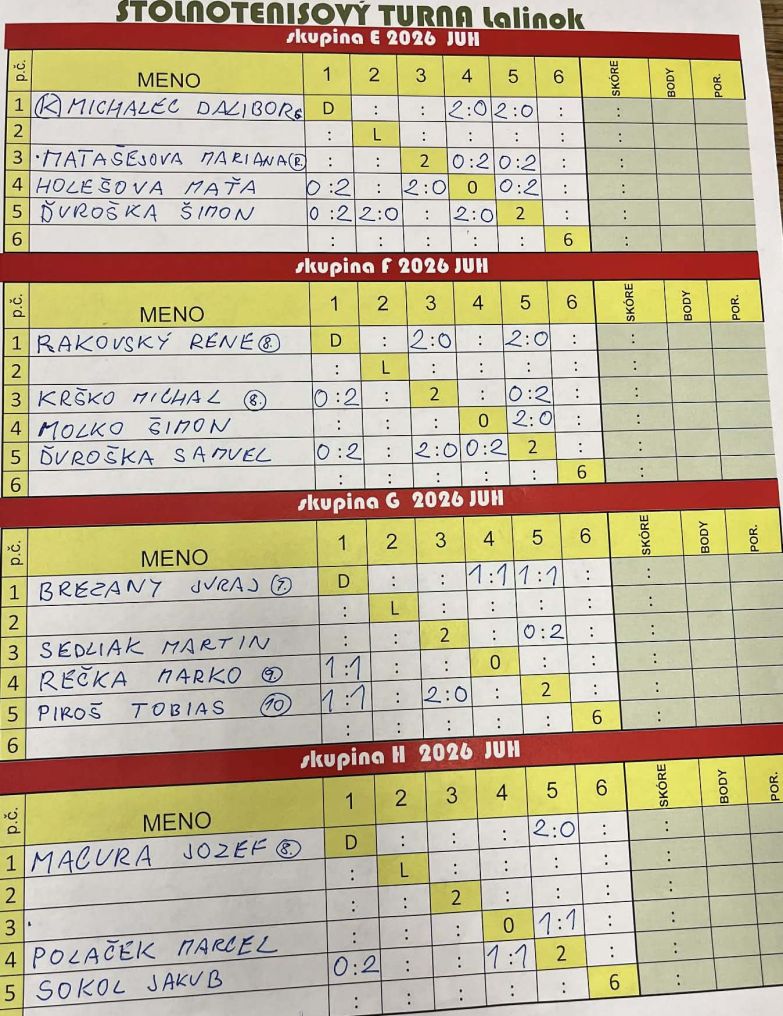 STOLNOTENISOVÝ TURNA Lalinok
skupina E 2026 JUH
p.č. MENO 1 2 3 4 5 6 SKÓRE BODY POR.
1 (K) MICHALEC DALIBOR D : : 2:0 2:0 : :
2 : L : : : : :
3 MATAŠEJOVA MARIANA : : 2 0:2 0:2 : :
4 HOLEŠOVA MAŤA 0:2 : 2:0 0 0:2 : :
5 ĎUROŠKA ŠIMON 0:2 2:0 : 2:0 2 : :
6 : : : : : 6 :
skupina F 2026 JUH
p.č. MENO 1 2 3 4 5 6 SKÓRE BODY POR.
1 RAKOVSKÝ RENE (8.) D : 2:0 : 2:0 : :
2 : L : : : : :
3 KRŠKO MICHAL (8.) 0:2 : 2 : 0:2 : :
4 MOLKO ŠIMON : : : 0 2:0 : :
5 ĎUROŠKA SAMUEL 0:2 : 2:0 0:2 2 : :
6 : : : : : 6 :
skupina G 2026 JUH
p.č. MENO 1 2 3 4 5 6 SKÓRE BODY POR.
1 BREZANY JURAJ (7.) D : : 1:1 1:1 : :
2 : L : : : : :
3 SEDLIAK MARTIN : : 2 : 0:2 : :
4 REČKA MARKO (9.) 1:1 : : 0 : : :
5 PIROŠ TOBIAS (10) 1:1 : 2:0 : 2 : :
6 : : : : : 6 :
skupina H 2026 JUH
p.č. MENO 1 2 3 4 5 6 SKÓRE BODY POR.
1 MACURA JOZEF (8.) D : : : 2:0 : :
2 : L : : : : :
3 : : 2 : : : :
4 POLAČEK MARCEL : : : 0 1:1 : :
5 SOKOL JAKUB 0:2 : : 1:1 2 : :
: : : : : 6 :